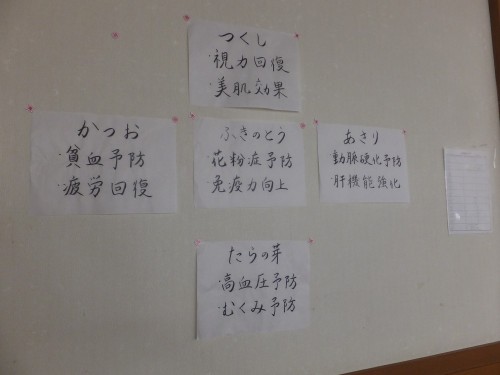 つくし
・視力回復
・美肌効果
かつお
・貧血予防
・疲労回復
ふきのとう
・花粉症予防
・免疫力向上
あさり
・動脈硬化予防
・肝機能強化
たらの芽
・高血圧予防
・むくみ予防